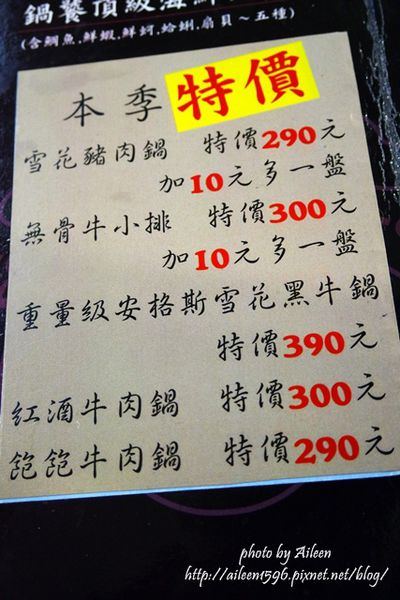 鍋饗頂級海鮮
(含鯛魚.鮮蝦.鮮蚵.蛤蜊.扇貝～五種)
本季特價
雪花豬肉鍋 特價290元
加10元多一盤
無骨牛小排 特價300元
加10元多一盤
重量級安格斯雪花黑牛鍋
特價390元
紅酒牛肉鍋 特價300元
飽飽牛肉鍋 特價290元
photo by Aileen
http://aileen1596.pixnet.net/blog/